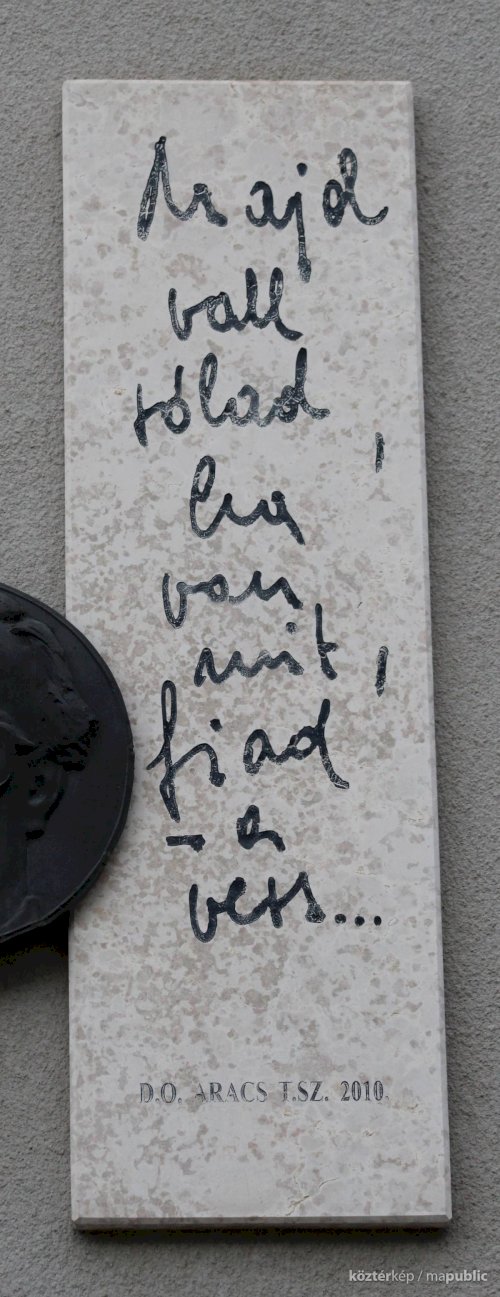 Majd
vall
rólad,
ha
van
mit,
fiad
- a
vers...
D.O. ARACS T.SZ. 2010.
köztérkép / mapublic